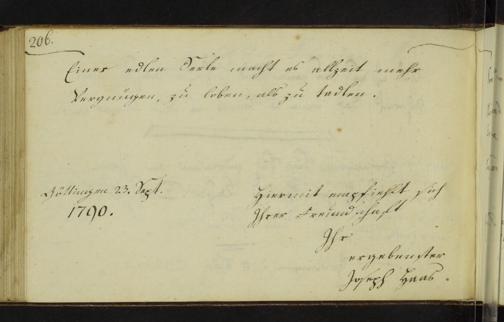 206.
Einer edlen Seele macht es allzeit mehr
Vergnügen, zu loben, als zu tadlen.
Göttingen 23. Sept.
1790.
Hiermit empfiehlt sich
Ihrer Freundschaft
Ihr
ergebenster
Joseph Haas.